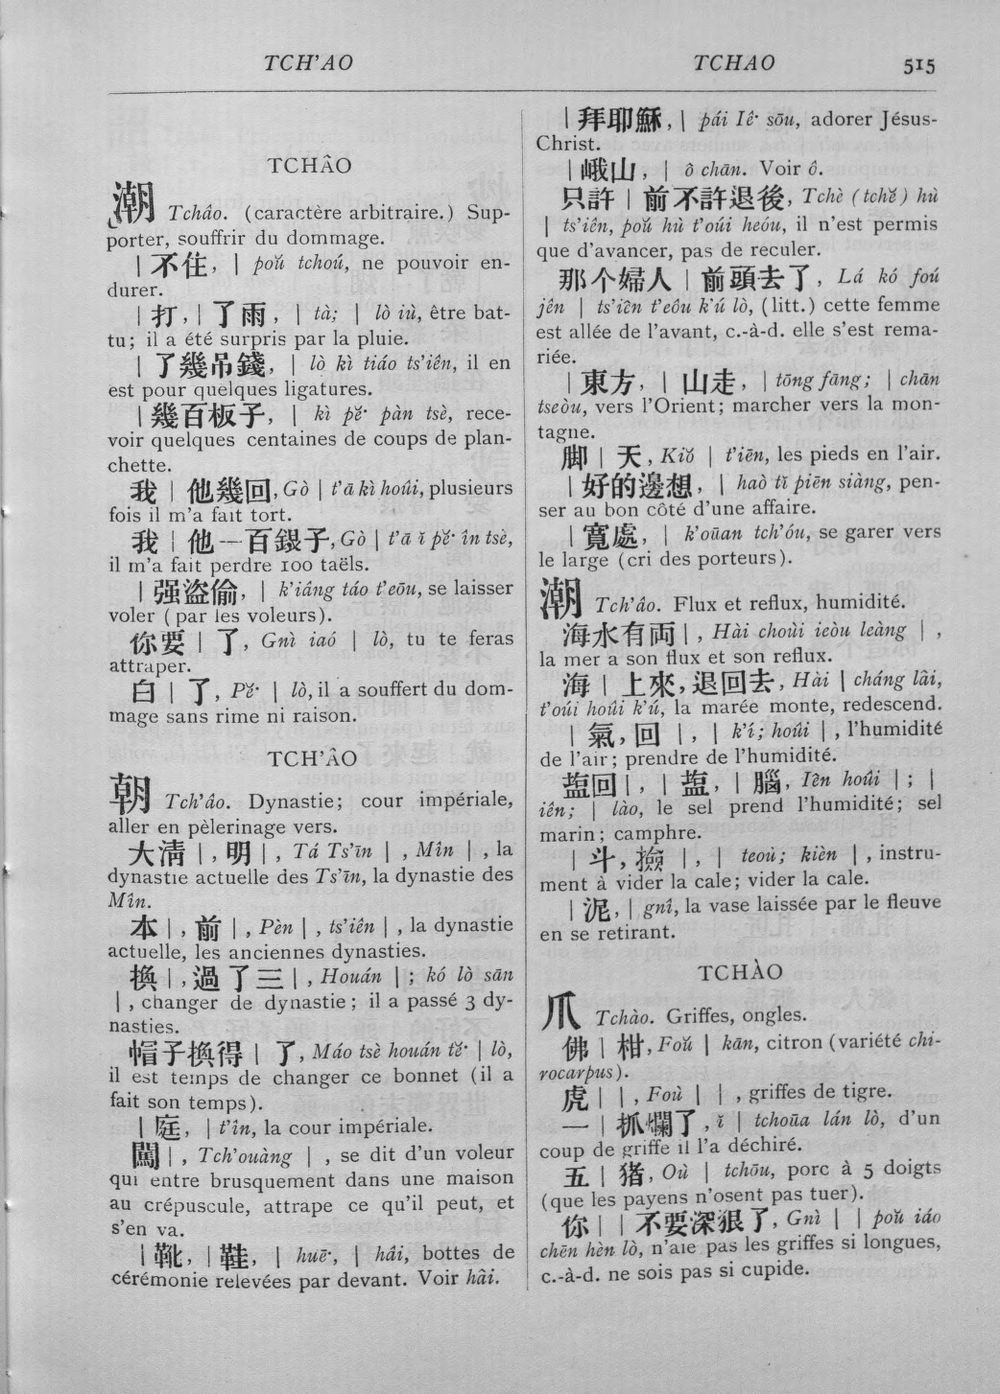 TCH’AO
TCHAO
515
TCHÂO
潮 Tchâo. (caractère arbitraire.) Sup-
porter, souffrir du dommage.
| 不住, | poŭ tchoú, ne pouvoir en-
durer.
| 打, | 了雨, | tà; | lò iù, être bat-
tu; il a été surpris par la pluie.
| 了幾吊錢, | lò kì tiáo ts’iên, il en
est pour quelques ligatures.
| 幾百板子, | kì pĕ· pàn tsè, rece-
voir quelques centaines de coups de plan-
chette.
我 | 他幾回, Gò | t’ā kì hoûi, plusieurs
fois il m’a fait tort.
我 | 他一百銀子, Gò | t’ā ĭ pĕ· în tsè,
il m’a fait perdre 100 taëls.
| 强盜偷, | k’iâng táo t’eōu, se laisser
voler (par les voleurs).
你要 | 了, Gnì iaó | lò, tu te feras
attraper.
白 | 了, Pĕ· | lò, il a souffert du dom-
mage sans rime ni raison.
TCH’ÂO
朝 Tch’âo. Dynastie; cour impériale,
aller en pèlerinage vers.
大淸 |, 明 |, Tá Ts’īn | , Mîn | , la
dynastie actuelle des Ts’īn, la dynastie des
Mîn.
本 | , 前 | , Pèn | , ts’iên | , la dynastie
actuelle, les anciennes dynasties.
換 | , 過了三 | , Houán | ; kó lò sān
| , changer de dynastie; il a passé 3 dy-
nasties.
帽子換得 | 了, Máo tsè houán tĕ· | lò,
il est temps de changer ce bonnet (il a
fait son temps).
| 庭, | t’în, la cour impériale.
闖 | , Tch’ouàng | , se dit d’un voleur
qui entre brusquement dans une maison
au crépuscule, attrape ce qu’il peut, et
s’en va.
| 靴, | 鞋, | huē·, | hâi, bottes de
cérémonie relevées par devant. Voir hâi.
| 拜耶穌, | pái Iê· sōu, adorer Jésus-
Christ.
| 峨山, | ô chān. Voir ô.
只許 | 前不許退後, Tchè (tchĕ) hù
| ts’iên, poŭ hù t’oúi heóu, il n’est permis
que d’avancer, pas de reculer.
那个婦人 | 前頭去了, Lá kó foú
jên | ts’iên t’eôu k’ú lò, (litt.) cette femme
est allée de l’avant, c.-à-d. elle s’est rema-
riée.
| 東方, | 山走, | tōng fāng; | chān
tseòu, vers l’Orient; marcher vers la mon-
tagne.
脚 | 天, Kiŏ | t’iēn, les pieds en l’air.
| 好的邊想, | haò tĭ piēn siàng, pen-
ser au bon côté d’une affaire.
| 寬處, | k’oūan tch’óu, se garer vers
le large (cri des porteurs).
潮 Tch’âo. Flux et reflux, humidité.
海水有両 | , Hài choùi ieòu leàng | ,
la mer a son flux et son reflux.
海 | 上來, 退回去, Hài | cháng lâi,
t’oúi hoûi k’ú, la marée monte, redescend.
| 氣, 回 | , | k’í; hoûi | , l’humidité
de l’air; prendre de l’humidité.
塩回 | , | 塩, | 腦, Iên hoûi | ; |
iên; | lào, le sel prend l’humidité; sel
marin; camphre.
| 斗, 撿 | , | teoù; kièn | , instru-
ment à vider la cale; vider la cale.
| 泥, | gnî, la vase laissée par le fleuve
en se retirant.
TCHÀO
爪 Tchào. Griffes, ongles.
佛 | 柑, Foŭ | kān, citron (variété chi-
rocarpus).
虎 | | , Foù | | , griffes de tigre.
一 | 抓爛了, ĭ | tchoūa lán lò, d’un
coup de griffe il l’a déchiré.
五 | 猪, Où | tchōu, porc à 5 doigts
(que les payens n’osent pas tuer).
你 | | 不要深狠了, Gnì | | poŭ iáo
chēn hèn lò, n’aie pas les griffes si longues,
c.-à-d. ne sois pas si cupide.